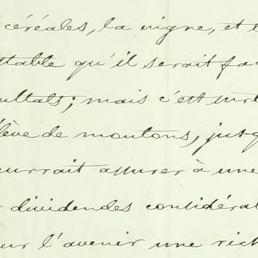 céréales, la vigne, et
table qu'il serait fa
sultats; mais c'est surt
lève de moutons, jusq
ourrait assurer à une
dividendes considéra
ur l'avenir une rich